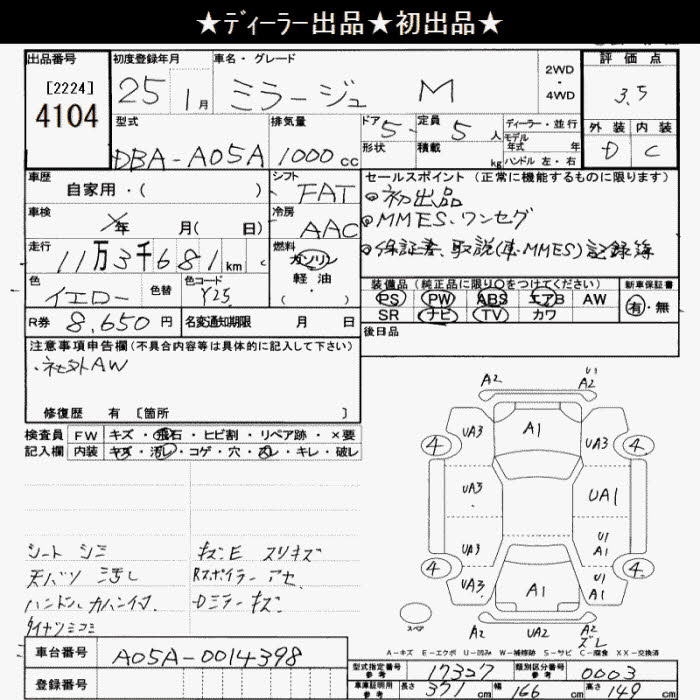 ★ディーラー出品★初出品★
出品番号
[2224]
4104
初度登録年月
25 1月
車名・グレード
ミラージュ M
2WD
・
4WD
評価点
3.5
外装 内装
D C
型式
DBA-A05A
排気量
1000cc
ドア 5
形状
定員 5人
積載 kg
ディーラー・並行
モデル
年式 年
ハンドル 左・右
車歴
自家用・( )
シフト
FAT
車検
年 月( 日)
冷房
AAC
走行
11万3千681km
燃料
ガソリン
軽油
( ・ )
色
イエロー
色替
色コード
Y25
R券 8,650円
名変通知期限 月 日
セールスポイント(正常に機能するものに限ります)
◎初出品
◎MMES、ワンセグ
◎保証書、取説(車・MMES)記録簿
装備品(純正品に限り○をつけてください)
PS PW ABS エアB AW
SR ナビ TV カワ
新車保証書
有・無
後日品
注意事項申告欄(不具合内容等は具体的に記入して下さい)
・社外AW
修復歴 有 [箇所 ]
検査員
記入欄
FW キズ・飛石・ヒビ割・リペア跡・×要
内装 キズ・汚レ・コゲ・穴・スレ・キレ・破レ
シート シミ
天バリ 汚レ
ハンドル
キズE スリキズ
Rスポイラー アセ
Dミラー キズ
A2
U1
A2
A1
4
UA3
UA3
4
UA3
UA1
UA3
U1
A1
4
UA3
A1
U1
A1
4
A2
UA2
A2
ズレ
スペア
A-キズ E-エクボ U-凹み W-補修跡 S-サビ C-腐食 XX-交換済
車台番号
A05A-0014398
登録番号
型式指定番号
参考
17327
類別区分番号
参考
0003
車庫証明用
参考
長さ 371cm
幅 166cm
高さ 149cm